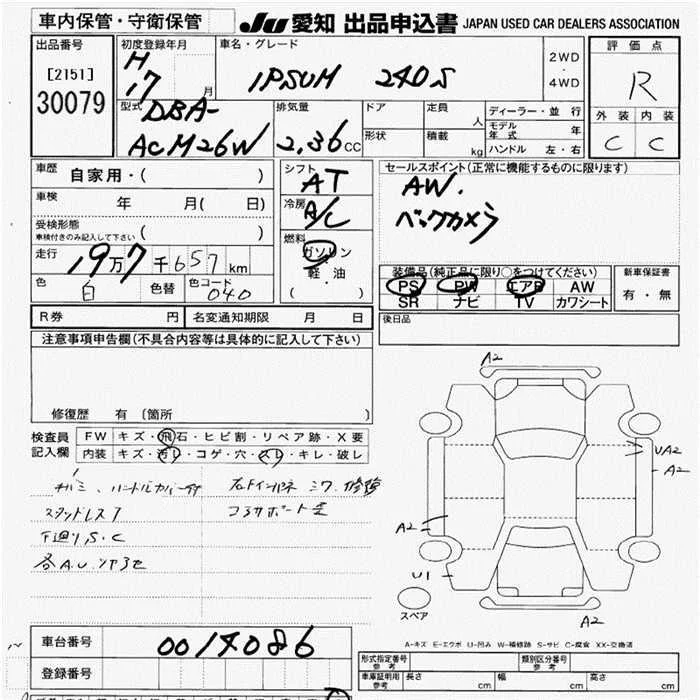 車内保管・守衛保管
JU 愛知 出品申込書 JAPAN USED CAR DEALERS ASSOCIATION
出品番号
[2151]
30079
初度登録年月
H
17
月
車名・グレード
IPSUM 240S
2WD
・
4WD
評価点
R
外装 内装
C C
型式
DBA-
ACM26W
排気量
2.36 CC
ドア
形状
定員
人
積載
kg
ディーラー・並行
モデル年式 年
ハンドル 左・右
車歴 自家用・( )
車検 年 月( 日)
受検形態
車検付きのみ記入して下さい ( )
走行 19万7千657km
色 白 色替 色コード 040
シフト AT
冷房 A/C
燃料
ガソリン
軽油
・
( )
セールスポイント(正常に機能するものに限ります)
AW.
バックカメラ
装備品(純正品に限り○をつけてください)
PS PW エアB AW
SR ナビ TV カワシート
新車保証書
有・無
R券 円 名変通知期限 月 日
後日品
注意事項申告欄(不具合内容等は具体的に記入して下さい)
修復歴 有 [箇所 ]
検査員
記入欄
FW キズ・飛石・ヒビ割・リペア跡・X要
内装 キズ・汚レ・コゲ・穴・スレ・キレ・破レ
下廻りS.C
A2
UA2
A2
A2
U1
スペア
A2
A-キズ E-エクボ U-凹み W-補修跡 S-サビ C-腐食 XX-交換済
車台番号 0014086
登録番号
形式指定番号
参考
類別区分番号
参考
車庫証明用
参考
長さ cm 幅 cm 高さ cm